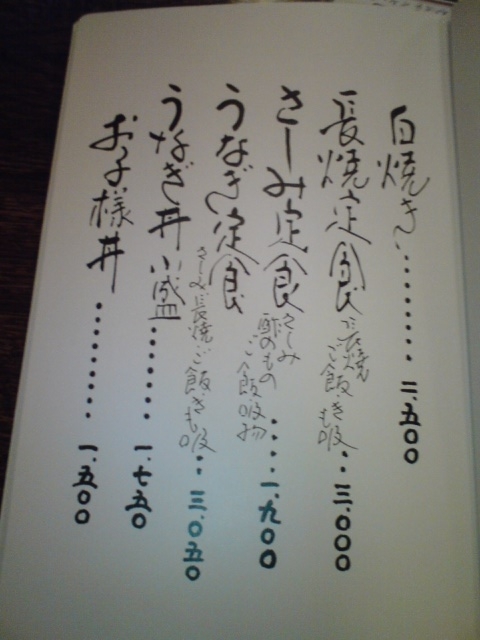 白焼き………二、五〇〇
長焼定食 長焼 ご飯・きも吸‥三、〇〇〇
さしみ定食 さしみ 酢のもの ご飯・吸物……一、九〇〇
うなぎ定食 さしみ・長焼・ご飯・きも吸‥三、〇五〇
うなぎ丼小盛………一、七五〇
お子様丼………一、五〇〇